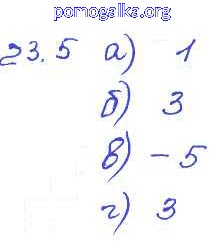 pomogalka.org
23.5 а) 1
б) 3
в) - 5
г) 3